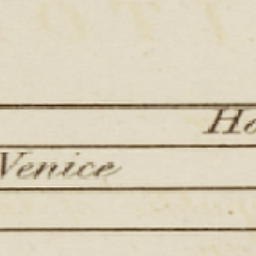 Ho
Venice